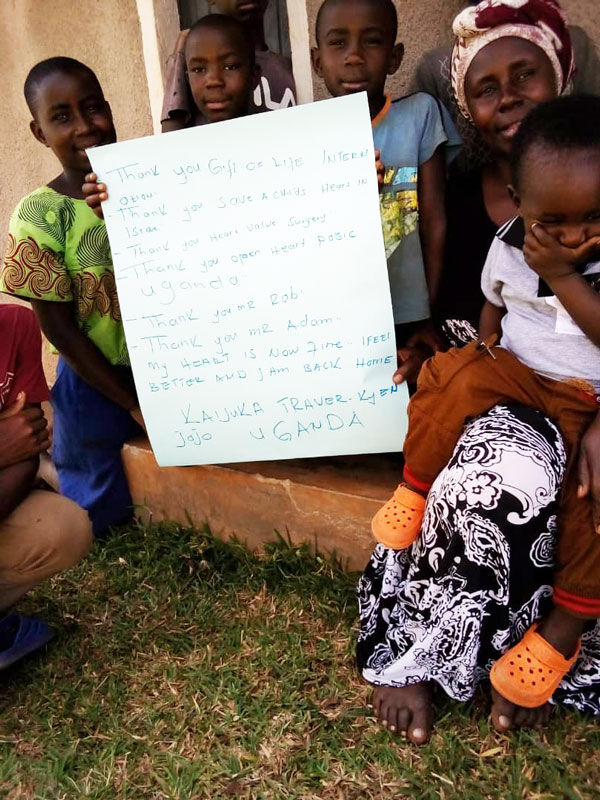 FILA
Thank you Gift of Life INTERN
ation.
Thank you SAVE A Child's Heart in
Israel
- Thank you Heart Value Surgery
Thank you open Heart
uganda
- Thank you MR Rob.
- Thank you MR Adam..
My HEART IS NOW FINE.. I FEEL
BETTER AND I AM BACK HOME
KAIJUKA TRAVER. KYEN
JOJO UGANDA